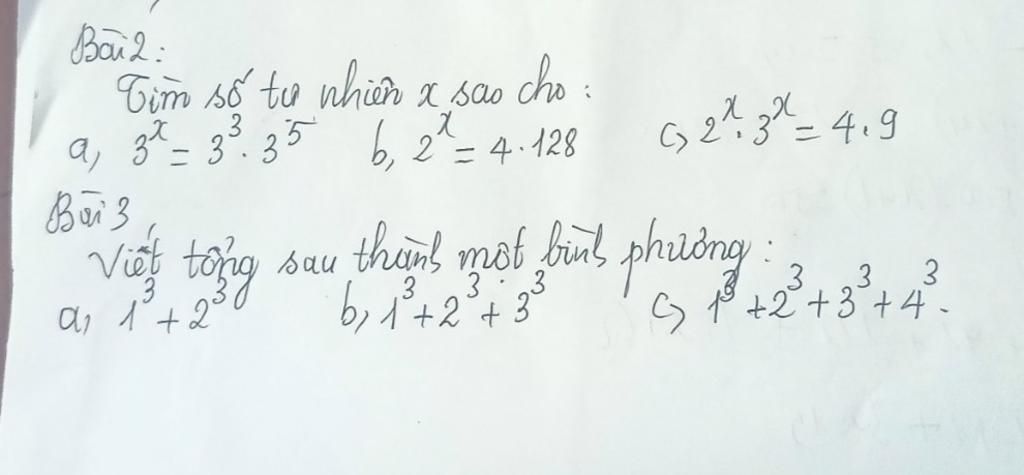 Bài 2:
Tìm số tự nhiên x sao cho:
a, 3^x = 3^3 . 3^5 b, 2^x = 4 . 128 c, 2^x . 3^x = 4 . 9
Bài 3,
Viết tổng sau thành một bình phương:
a, 1^3 + 2^3 b, 1^3 + 2^3 + 3^3 c, 1^3 + 2^3 + 3^3 + 4^3.